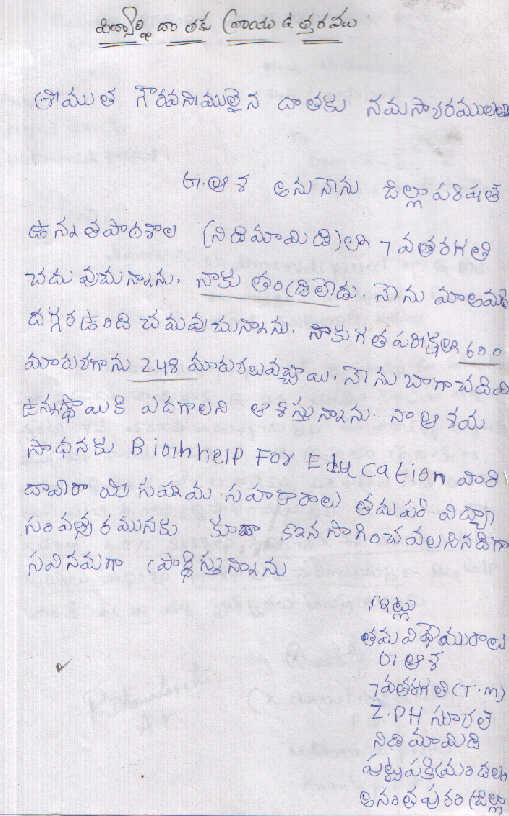 విద్యార్థి దాతకు వ్రాయు ఉత్తరము
శ్రీయుత గౌరవనీయులైన దాతకు నమస్కారములు
ఆశ అను నేను జిల్లా పరిషత్
ఉన్నత పాఠశాల (నిడిమామిడి)లో 7 వ తరగతి
చదువుచున్నాను. నాకు తండ్రి లేడు. నేను మా అమ్మ
దగ్గర ఉండి చదువుచున్నాను. నాకు గత పరీక్షలో 600
మార్కులకుగాను 248 మార్కులు వచ్చాయి. నేను బాగా చదివి
ఉన్నత స్థాయికి ఎదగాలని ఆశిస్తున్నాను. నా ఆశయ
సాధనకు help For Education వారి
ద్వారా మీ సహాయ సహకారాలు తదుపరి విద్యా
సంవత్సరమునకు కూడా కొనసాగించవలసినదిగా
సవినయంగా ప్రార్థిస్తున్నాను
ఇట్లు
తమ విధేయురాలు
ఆశ
7వ తరగతి (T.m)
Z.PH స్కూల్
నిడిమామిడి
పుట్టపర్తి మండలం
అనంతపురం జిల్లా